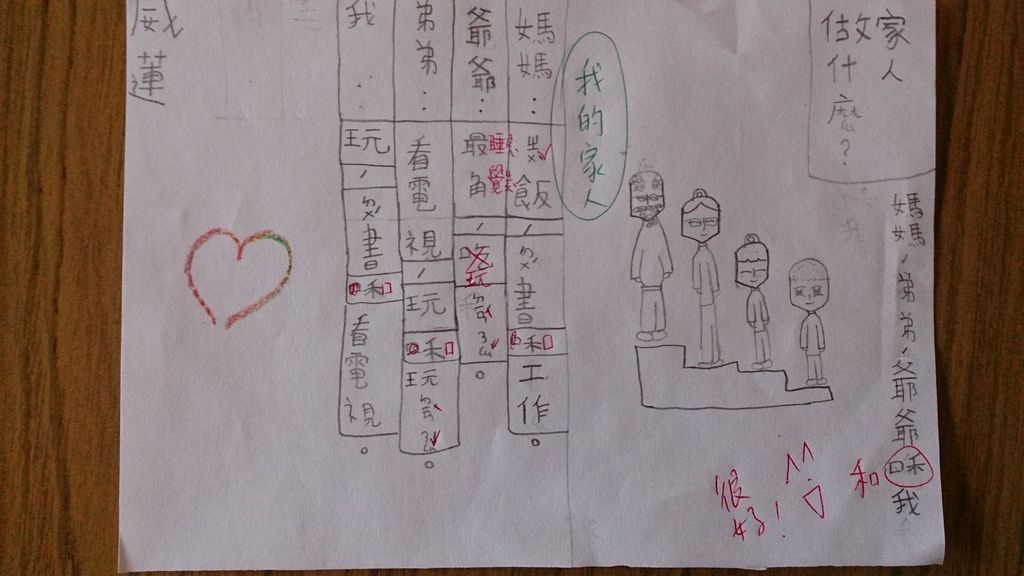 家人
做什麼?
媽媽,弟弟,爺爺咊我
和
很好!
我的家人
媽媽:飯,書和工作。
爺爺:最角,
睡覺
玩
弟弟:看電視,玩和玩
我:玩,書和看電視。
威蓮